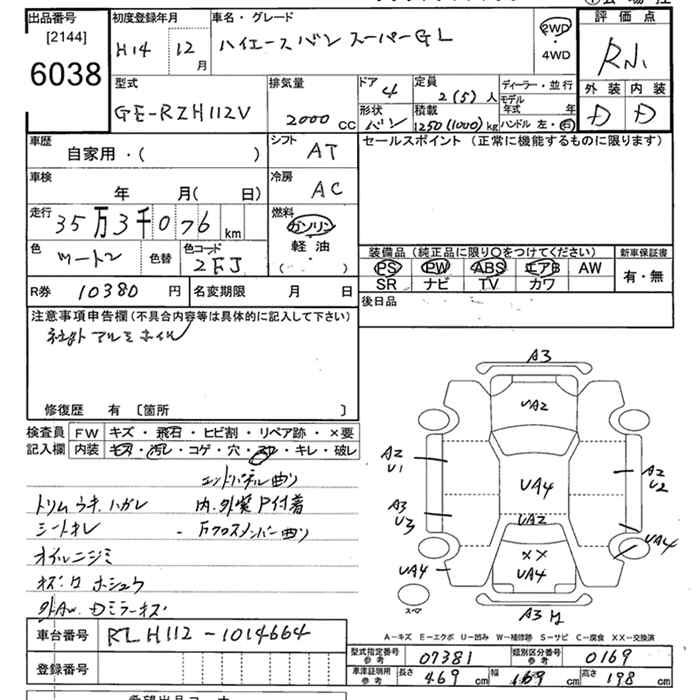 出品番号
[2144]
6038
初度登録年月
H14 12 月
車名・グレード
ハイエース バン スーパーGL
2WD
・
4WD
評価点
外装 内装
D D
型式
GE-RZH112V
排気量
2000 CC
ドア 4
形状 バン
定員
2(5) 人
積載
1250(1000) kg
ディーラー・並行
モデル年式 年
ハンドル 左・右
車歴
自家用・( )
シフト
AT
セールスポイント(正常に機能するものに限ります)
車検
年 月( 日)
冷房
AC
走行
35万3千076 km
燃料
ガソリン
軽油
・
( )
色
ツートン
色替
色コード
2EJ
装備品(純正品に限り○をつけてください)
PS PW ABS エアB AW
SR ナビ TV カワ
新車保証書
有・無
R券 10380 円
名変期限 月 日
後日品
注意事項申告欄(不具合内容等は具体的に記入して下さい)
社外アルミホイル
修復歴 有 〔箇所 〕
検査員 FW キズ・飛石・ヒビ割・リペア跡・×要
記入欄 内装 キズ・汚レ・コゲ・穴・スレ・キレ・破レ
エンドパネル曲リ
トリムウキ、ハガレ 内、外装P付着
シートオレ - Fクロスメンバー曲リ
オイルニジミ
キズ・凹 ホシュウ
外AW. Dミラーキズ
A3
UA2
A2
U1
A2
U2
UA4
A3
U3
UA2
UA4
XX
UA4
UA4
スペア
A3 M
A-キズ E-エクボ U-凹み W-補修跡 S-サビ C-腐食 XX-交換済
車台番号 RZH112-1014664
登録番号
型式指定番号
参考
07381
類別区分番号
参考
0169
車庫証明用
参考
長さ 469 cm 幅 169 cm 高さ 198 cm